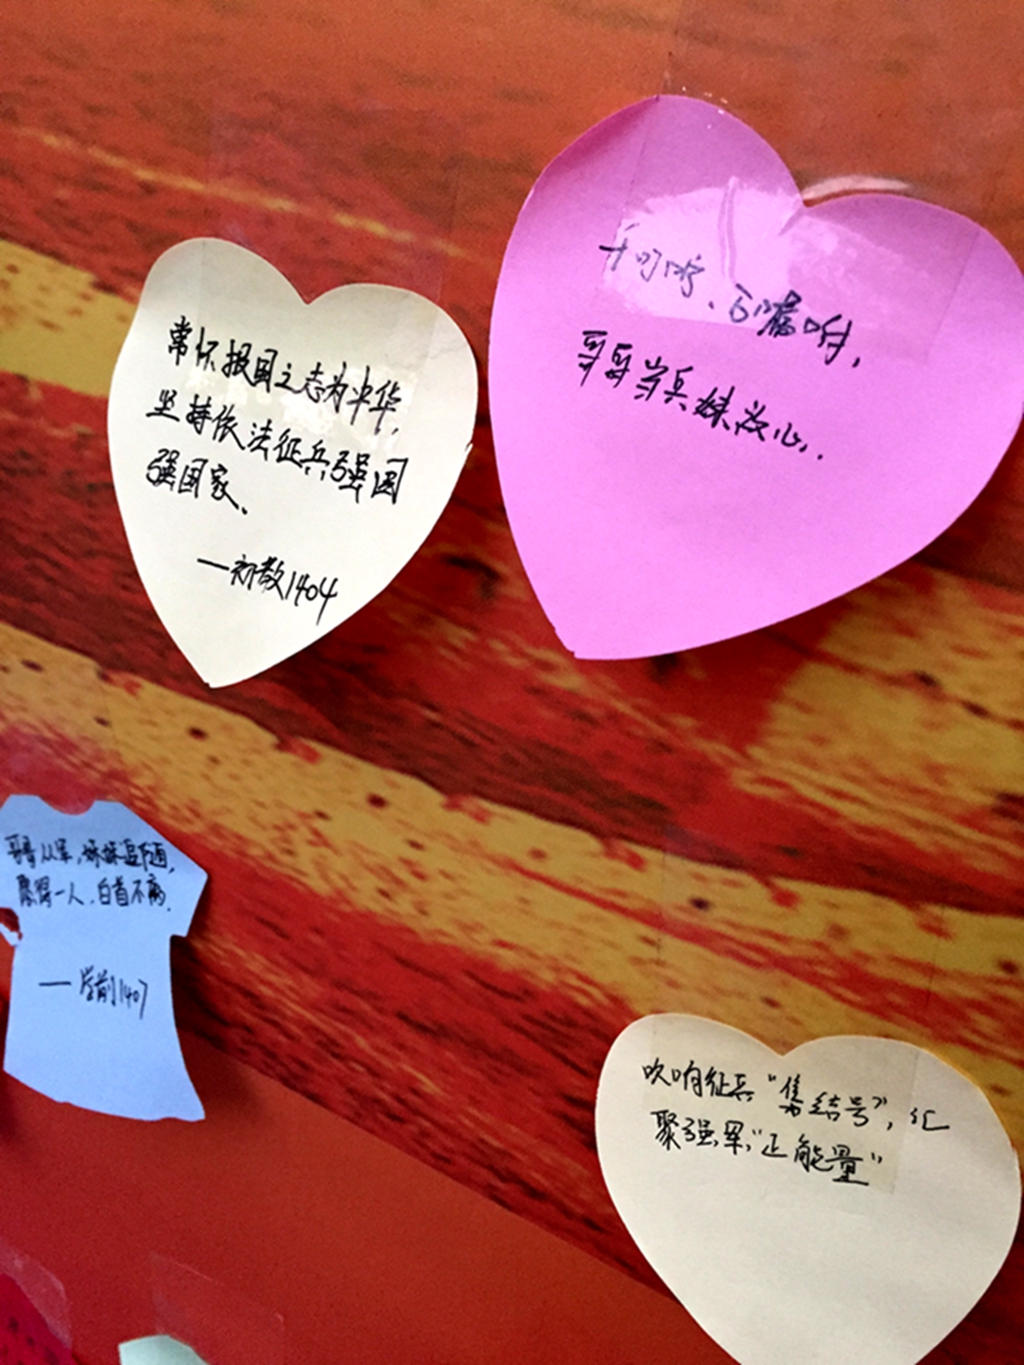 常怀报国之志为中华，
坚持依法征兵强国
强国家、
—初教1404
千叮咛、万嘱咐，
哥哥当兵妹放心..
哥哥从军，妹妹
愿得一人，白首不离.
— 学前1407
吹响征兵“集结号”，汇
聚强军“正能量”